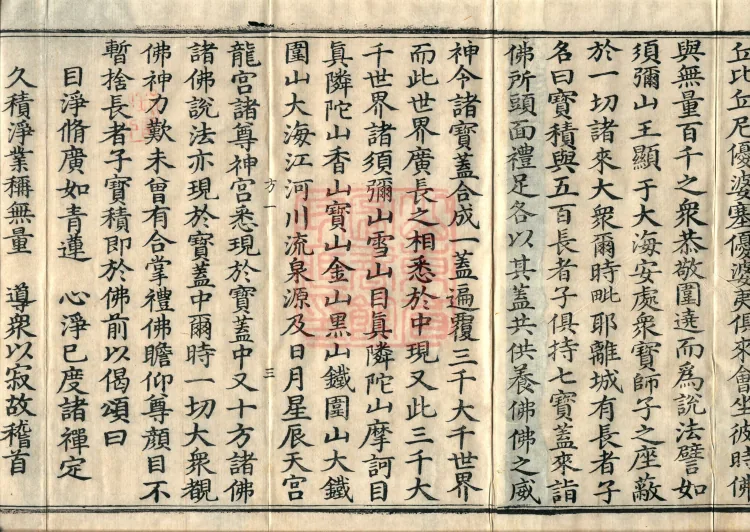 丘比丘尼優婆塞優婆夷俱來會坐彼時佛
與無量百千之衆恭敬圍遶而爲說法譬如
須彌山王顯于大海安處衆寶師子之座蔽
於一切諸來大衆爾時毗耶離城有長者子
名曰寶積與五百長者子俱持七寶蓋來詣
佛所頭面禮足各以其蓋共供養佛佛之威
神令諸寶蓋合成一蓋遍覆三千大千世界
而此世界廣長之相悉於中現又此三千大
千世界諸須彌山雪山目真隣陀山摩訶目
真隣陀山香山寶山金山黑山鐵圍山大鐵
圍山大海江河川流泉源及日月星辰天宮
方一 三
龍宮諸尊神宮悉現於寶蓋中又十方諸佛
諸佛說法亦現於寶蓋中爾時一切大衆覩
佛神力歎未曾有合掌禮佛瞻仰尊顏目不
暫捨長者子寶積即於佛前以偈頌曰
目淨脩廣如青蓮 心淨已度諸禪定
久積淨業稱無量 導衆以寂故稽首